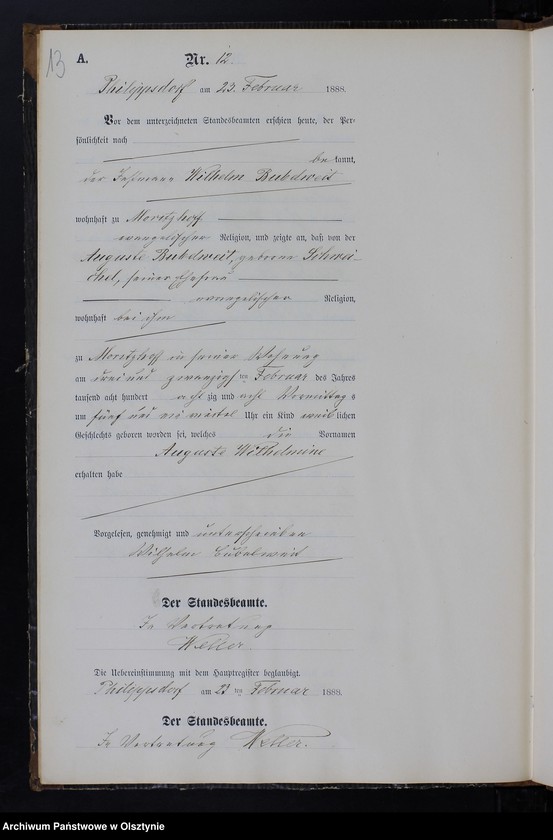 13
A. Nr. 12.
Philippsdorf am 23. Februar 1888.
Vor dem unterzeichneten Standesbeamten erschien heute, der Per-
sönlichkeit nach
be kannt,
der Instmann Wilhelm
wohnhaft zu Moritzhof
evangelischer Religion, und zeigte an, daß von der
Auguste geborene Schwei-
seiner Ehefrau
evangelischer Religion,
wohnhaft bei ihm
zu Moritzhof in seiner Wohnung
am drei und zwanzigsten Februar des Jahres
tausend acht hundert acht zig und acht Vormittag s
um fünf und ein viertel Uhr ein Kind weib lichen
Geschlechts geboren worden sei, welches die Vornamen
Auguste Wilhelmine
erhalten habe
Vorgelesen, genehmigt und unterschrieben
Wilhelm
Der Standesbeamte.
In Vertretung
Die Uebereinstimmung mit dem Hauptregister beglaubigt.
Philippsdorf am 23 ten Februar 1888.
Der Standesbeamte.
In Vertretung
Archiwum Państwowe w Olsztynie